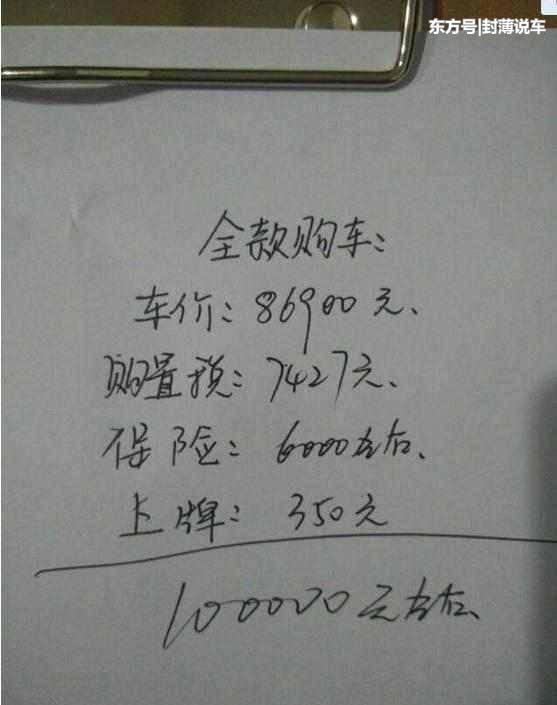 东方号|封薄说车
全款购车:
车价: 86900元、
购置税: 7427元、
保险: 6000左右、
上牌: 350元
100000元左右、